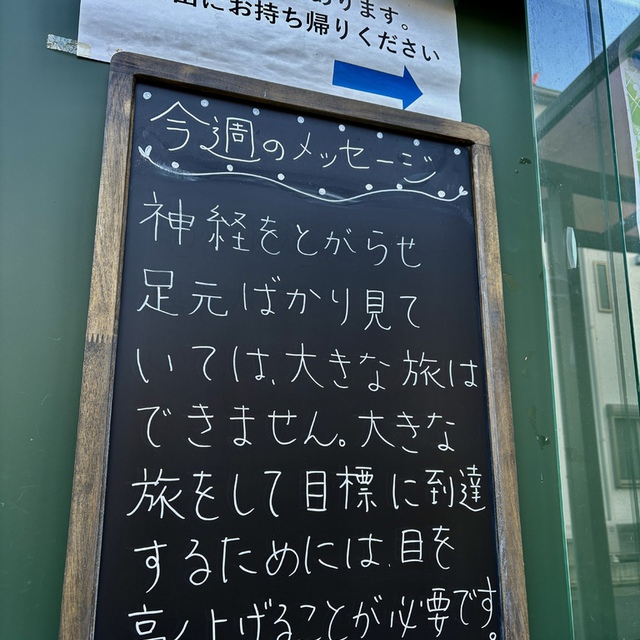 あります。
にお持ち帰りください
今週のメッセージ
神経をとがらせ
足元ばかり見て
いては、大きな旅は
できません。大きな
旅をして目標に到達
するためには、目を
高く上げることが必要です。